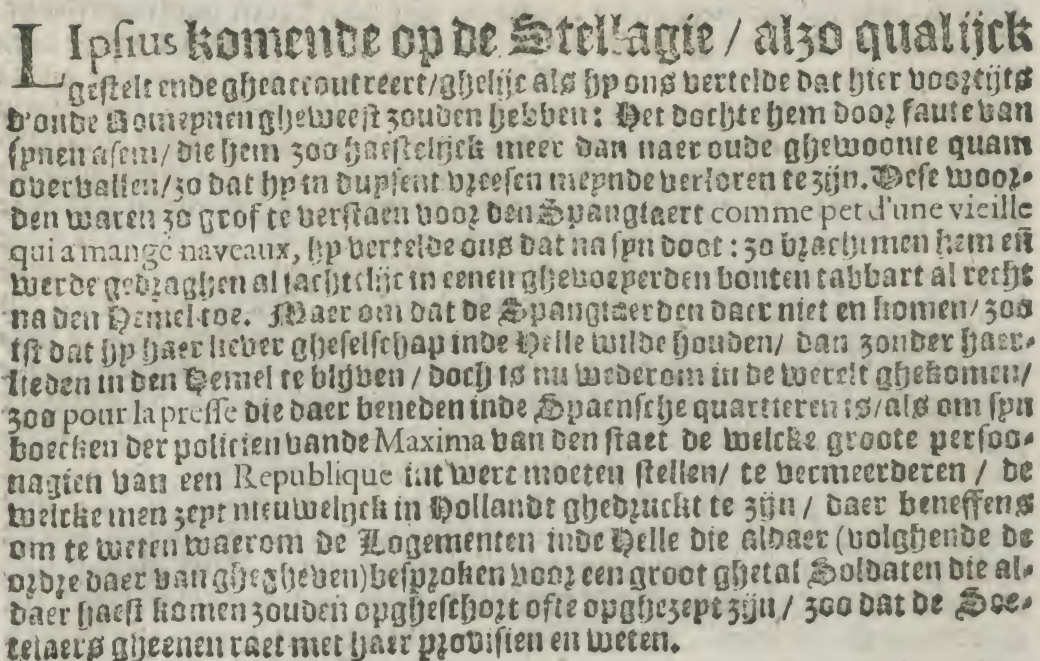 LIpsius komende op de Stellagie / alzo qualijck
gestelt ende gheaccoutreert/ghelijc als hy ons vertelde dat hier voortijts
d'oude Romeynen gheweest zouden hebben: Het dochte hem door faute van
synen asem/ die hem zoo haestelijck meer dan naer oude ghewoonte quam
overvallen/zo dat hy in duysent vreesen meynde verloren te zijn. Dese woor-
den waren zo grof te verstaen voor den Spangiaert comme pet d'une vieille
qui a mangé naveaux, hy vertelde ons dat na syn doot: zo brachtmen hem en̄
werde gedraghen al sachtelijc in eenen ghevoeyerden bonten tabbart al recht
na den Hemel toe. Maer om dat de Spangiaerden daer niet en komen/ zoo
ist dat hy haer liever gheselschap inde Helle wilde houden/ dan zonder haer-
lieden in den Hemel te blijven / doch is nu wederom in de werelt ghekomen/
zoo pour la presse die daer beneden inde Spaensche quartieren is/als om syn
boecken der politien vande Maxima van den staet de welcke groote perſoo-
nagien van een Republique int werc moeten stellen/ te vermeerderen / de
welcke men zeyt nieuwelijck in Hollandt ghedruckt te zijn / daer beneffens
om te weten waerom de Logementen inde Helle die aldaer (volghende de
ordre daer van ghegheven) besproken voor een groot ghetal Soldaten die al-
daer haest komen zouden opgheschort ofte opghezeyt zijn / zoo dat de Soe-
telaers gheenen raet met haer provisien en weten.